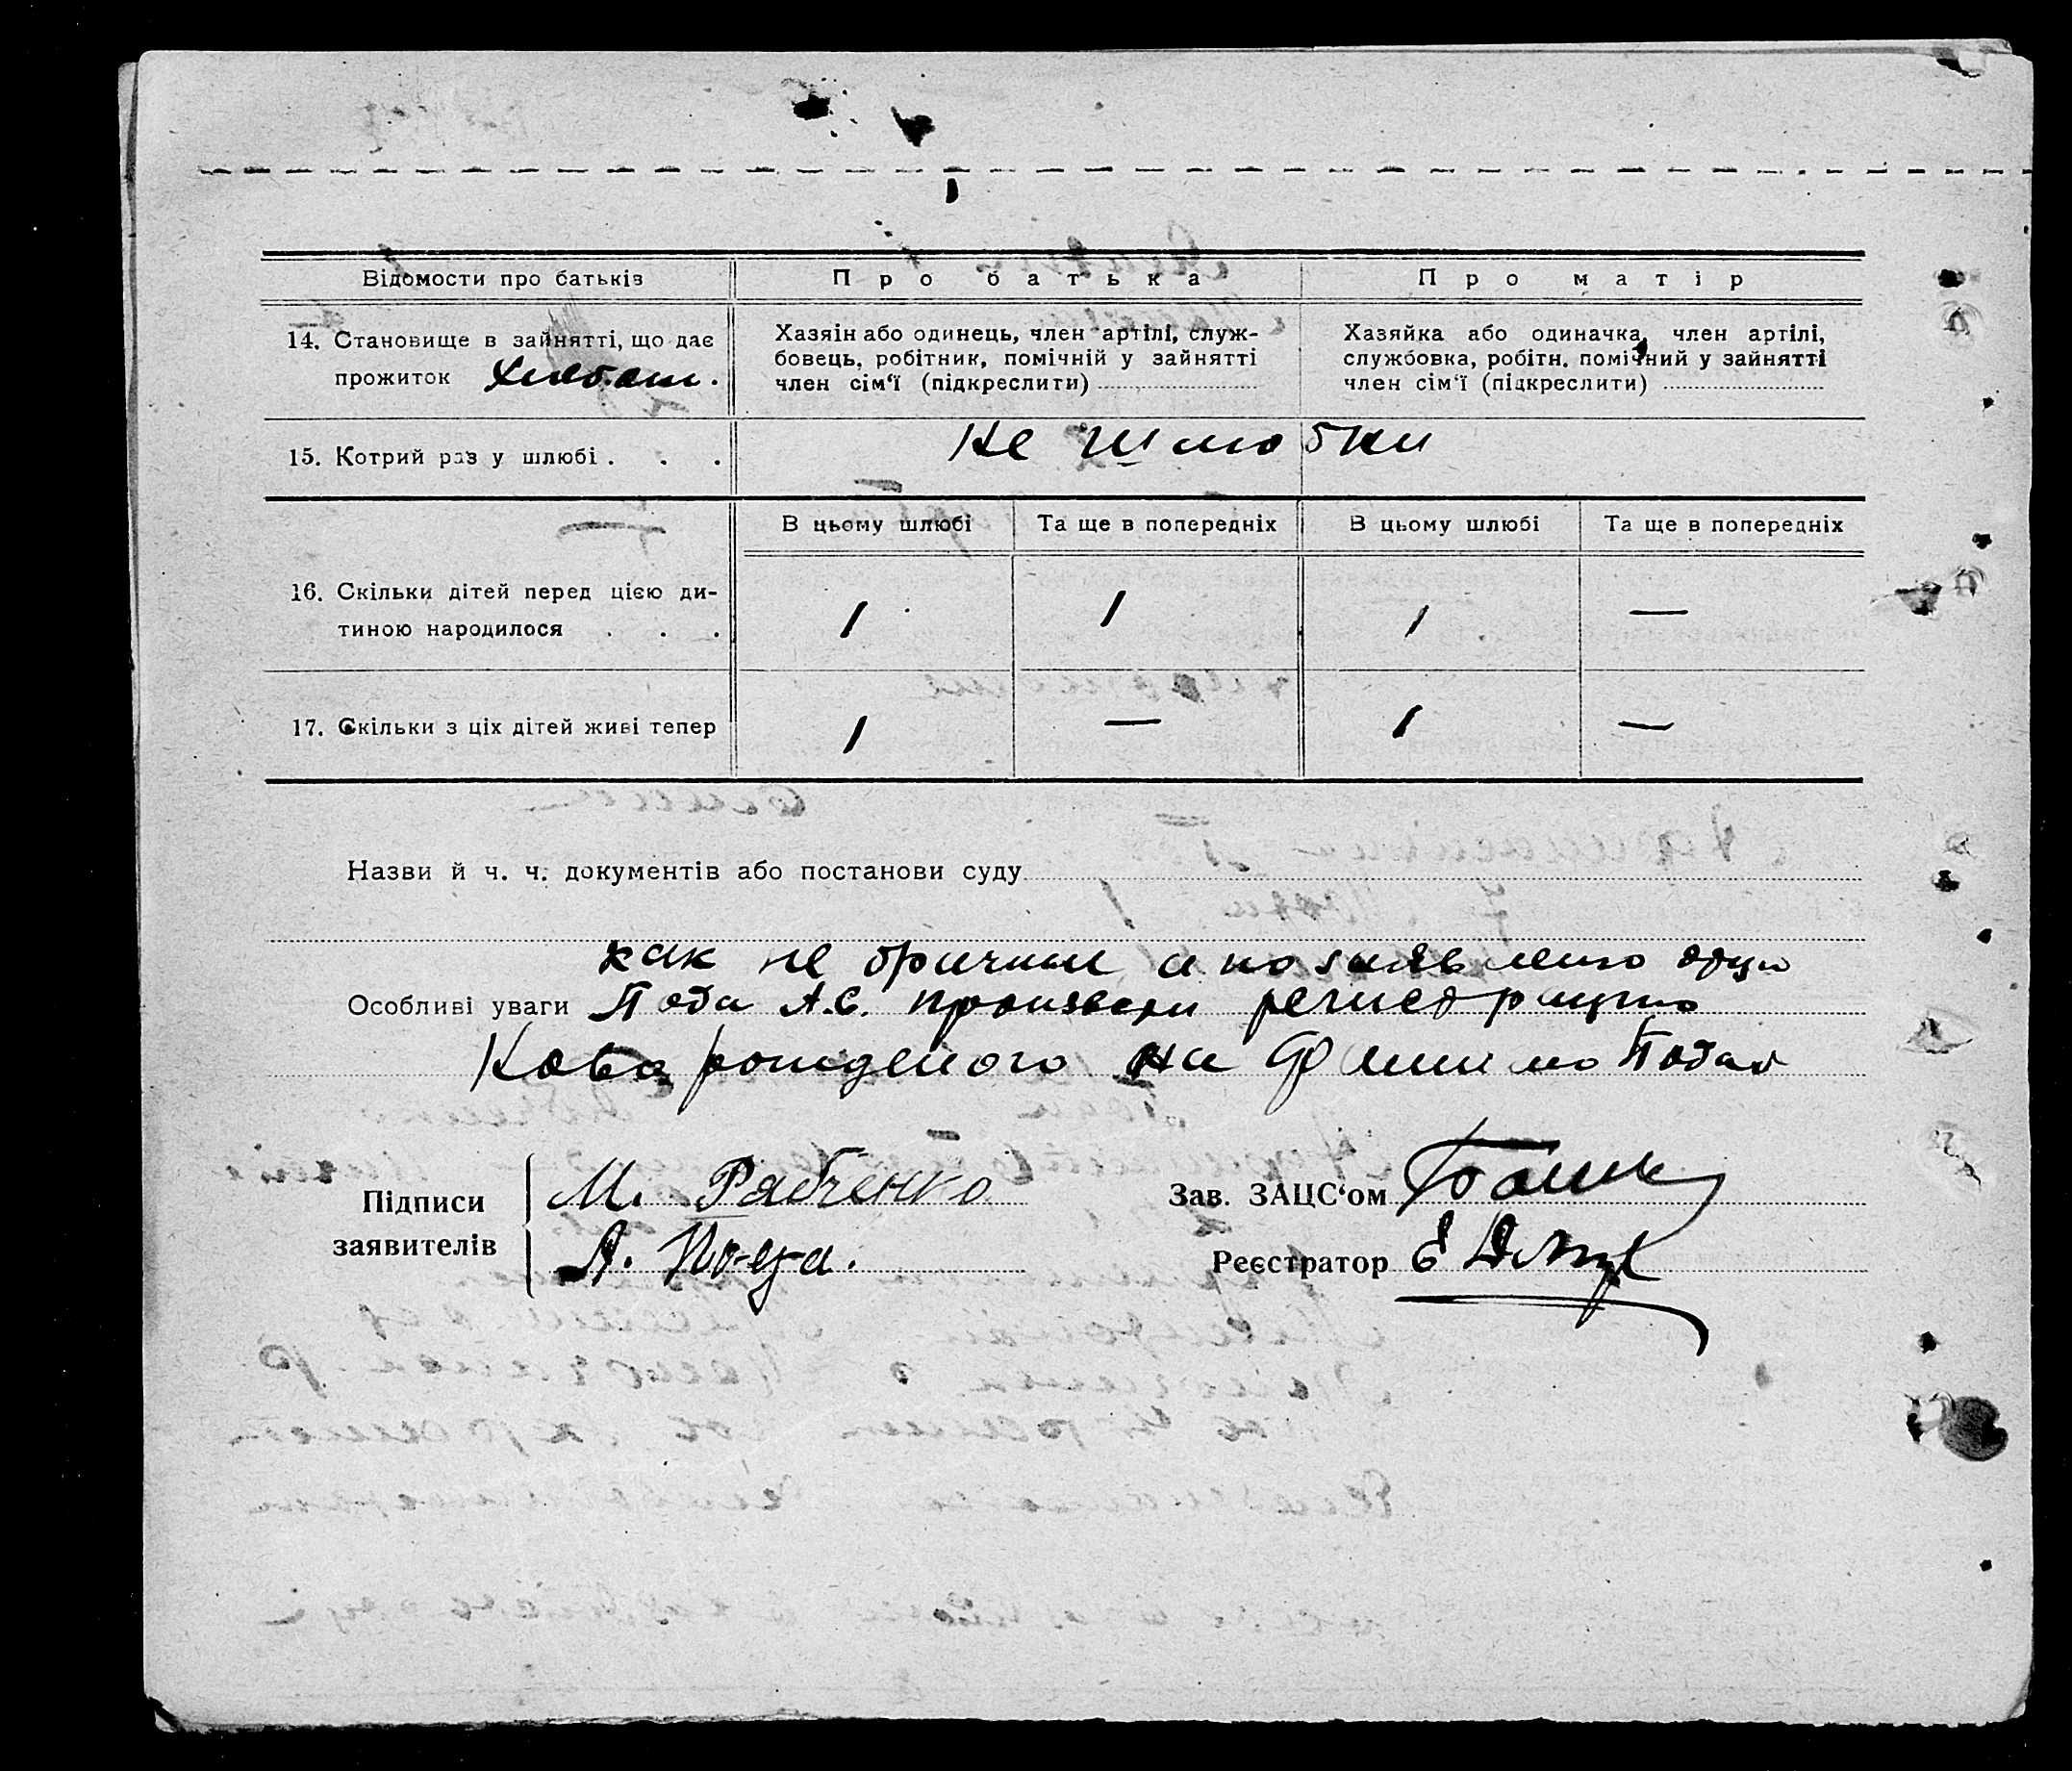 Відомости про батьків
Про батька
Про матір
14. Становище в зайнятті, що дає
прожиток Хлебопаш.
Хазяін або одинець, член артілі, служ-
бовець, робітник, помічній у зайнятті
член сім'ї (підкреслити)
Хазяйка або одиначка, член артілі,
службовка, робітн. помічний у зайнятті
член сім'ї (підкреслити)
15. Котрий раз у шлюбі . . .
не шлюбни
В цьому шлюбі
Та ще в попередніх
В цьому шлюбі
Та ще в попередніх
16. Скільки дітей перед цією ди-
тиною народилося . . .
1
1
1
—
17. Скільки з ціх дітей живі тепер
1
—
1
—
Назви й ч. ч. документів або постанови суду
как не брачни а по заявлению отца
Особливі уваги А.С. регистрацию
на фамилию
Підписи
заявителів
М. Рябченко
А.
Зав. ЗАЦС'ом
Реєстратор